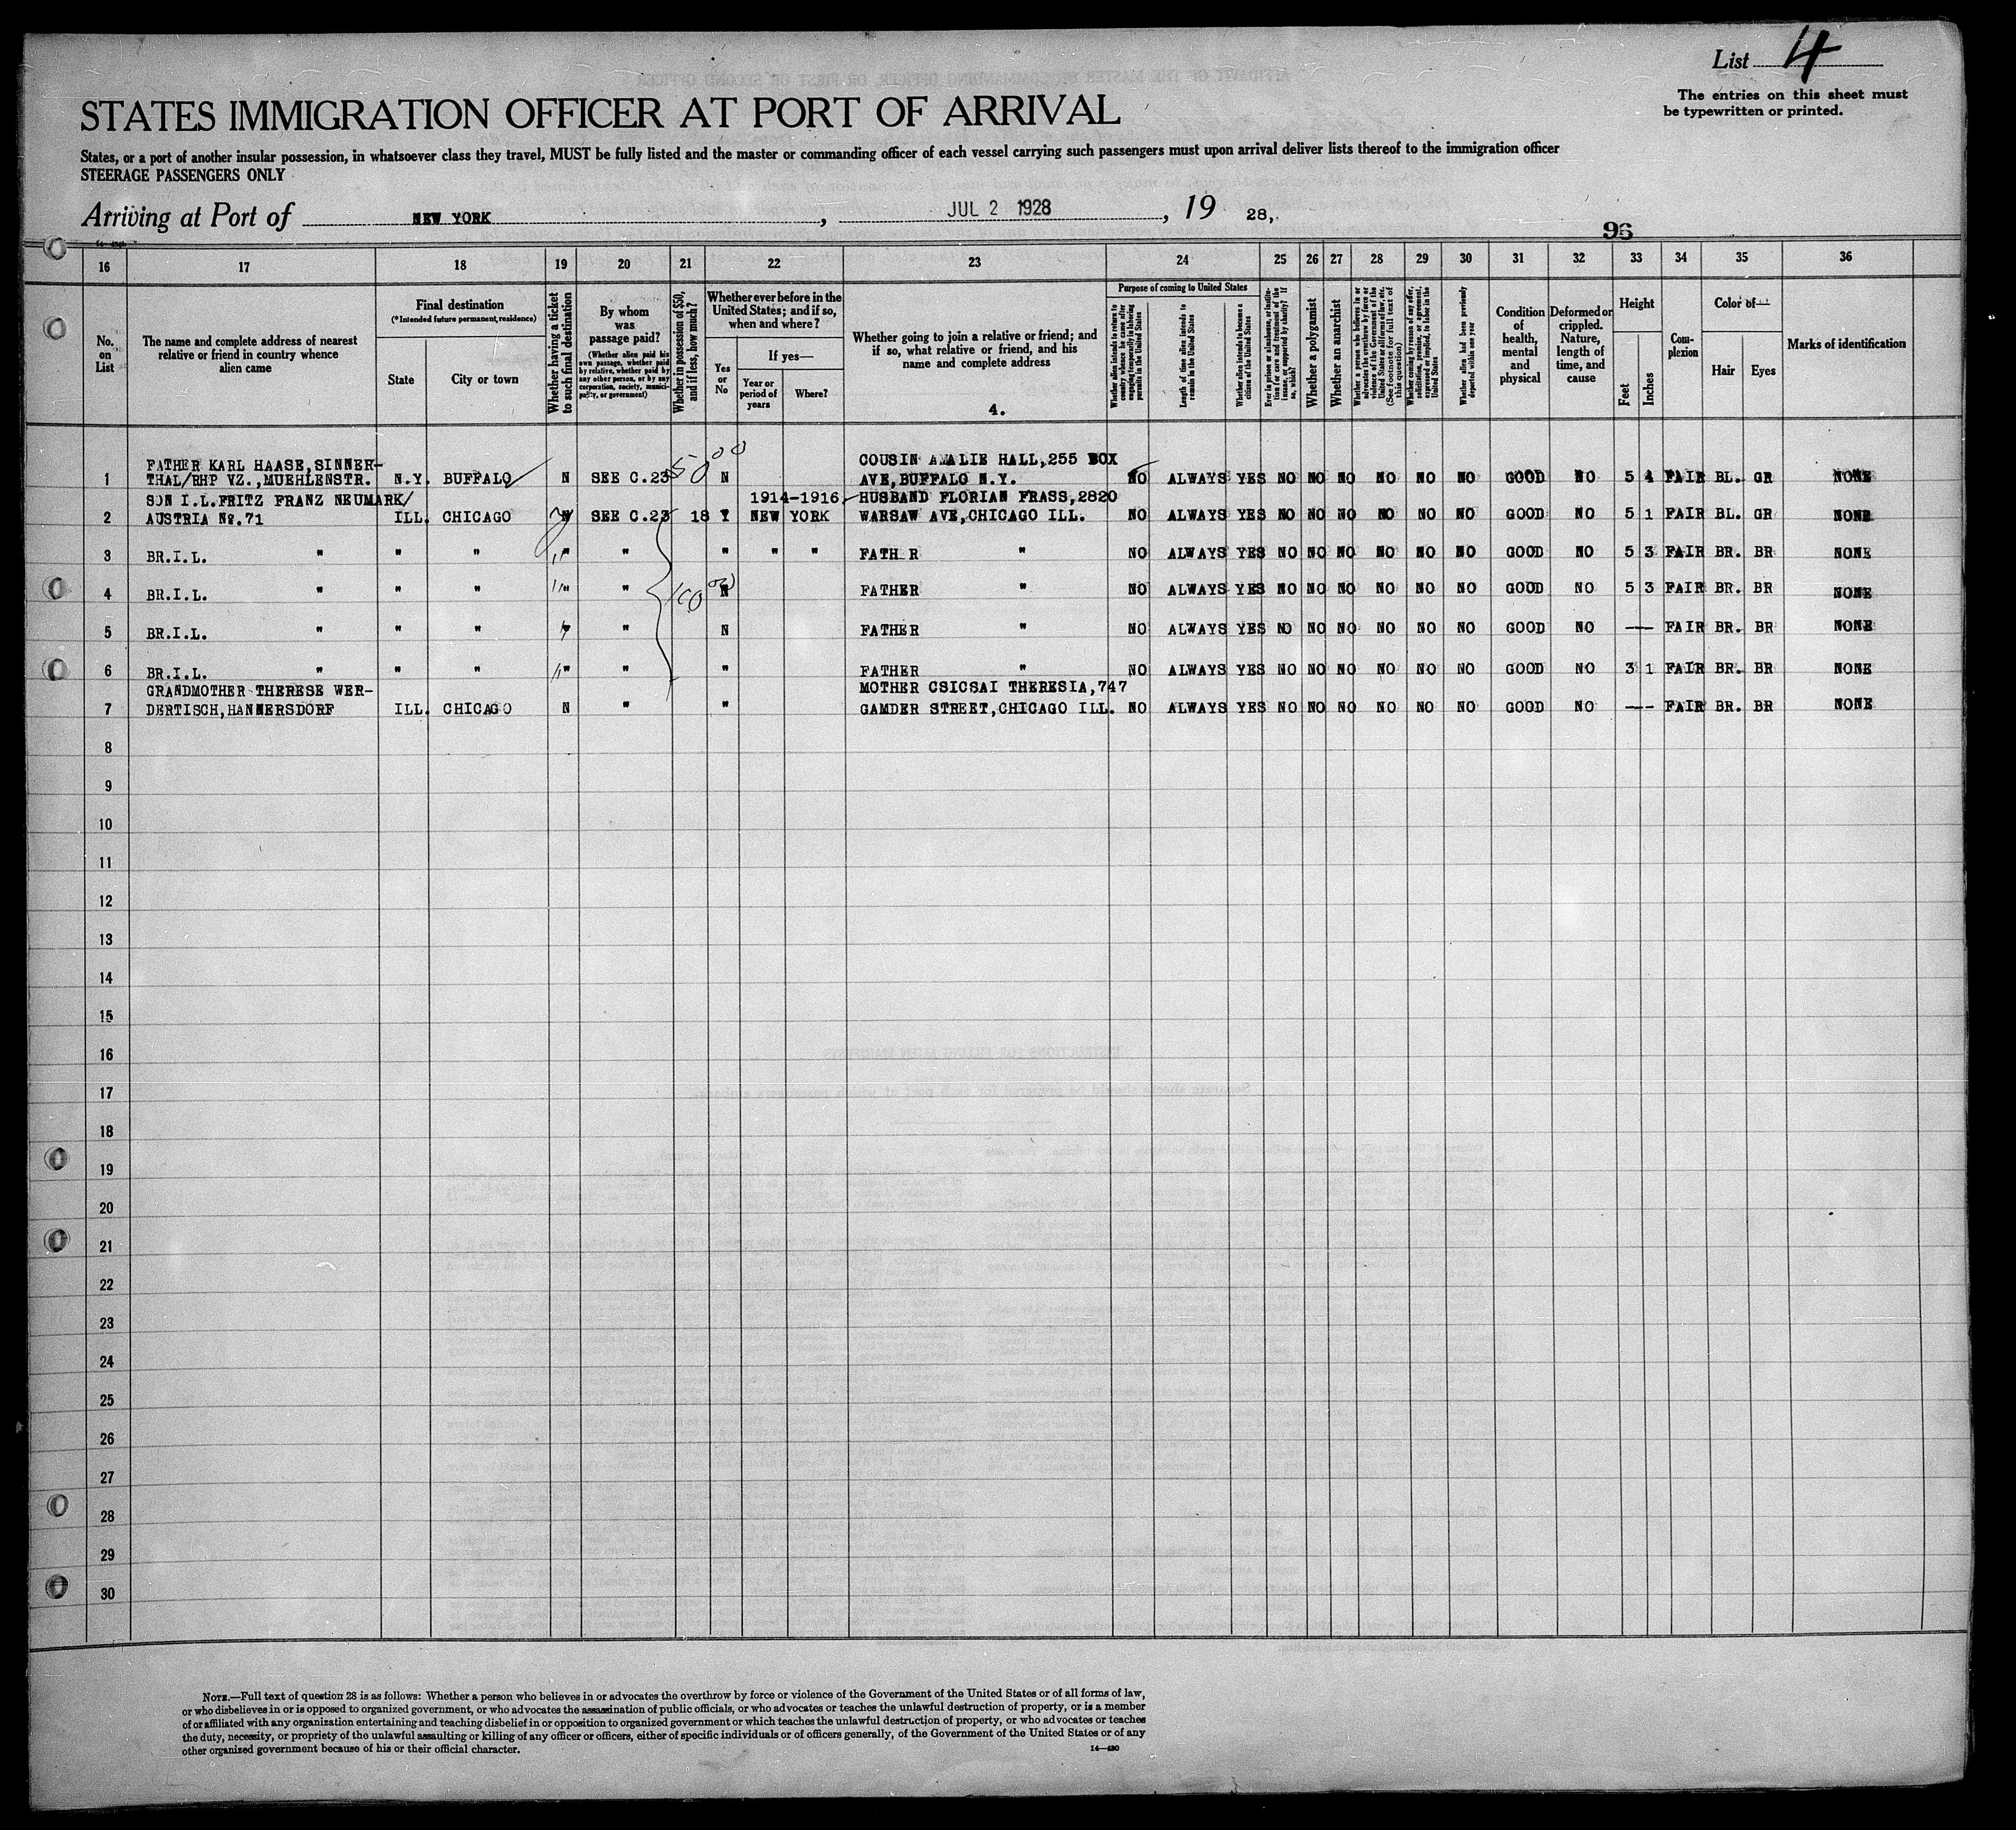 List 4
The entries on this sheet must
be typewritten or printed.
STATES IMMIGRATION OFFICER AT PORT OF ARRIVAL
States, or a port of another insular possession, in whatsoever class they travel, MUST be fully listed and the master or commanding officer of each vessel carrying such passengers must upon arrival deliver lists thereof to the immigration officer
STEERAGE PASSENGERS ONLY
Arriving at Port of NEW YORK, JUL 2 1928, 19 28,
96
16 17 18 19 20 21 22 23 24 25 26 27 28 29 30 31 32 33 34 35 36
No. on List
The name and complete address of nearest relative or friend in country whence alien came
Final destination
(*Intended future permanent residence)
State
City or town
Whether having a ticket to such final destination
By whom was passage paid?
(Whether alien paid his own passage, whether paid by relative, whether paid by any other person, or by any corporation, society, municipality, or government)
Whether in possession of $50, and if less, how much?
Whether ever before in the United States; and if so, when and where?
Yes or No
If yes—
Year or period of years
Where?
Whether going to join a relative or friend; and if so, what relative or friend, and his name and complete address
4.
Purpose of coming to United States
Whether alien intends to return to country whence he came after engaging temporarily in laboring pursuits in the United States
Length of time alien intends to remain in the United States
Whether alien intends to become a citizen of the United States
Ever in prison or almshouse, or institution for care and treatment of the insane, or supported by charity? If so, which?
Whether a polygamist
Whether an anarchist
Whether a person who believes in or advocates the overthrow by force or violence of the Government of the United States or all forms of law, etc. (See footnote for full text of this question)
Whether coming by reason of any offer, solicitation, promise, or agreement, expressed or implied, to labor in the United States
Whether alien had been previously deported within one year
Condition of health, mental and physical
Deformed or crippled. Nature, length of time, and cause
Height
Feet
Inches
Complexion
Color of—
Hair
Eyes
Marks of identification
FATHER KARL HAASE, SINNER- 50 00 COUSIN AMALIE HALL, 255 BOX
1 THAL/RHP VZ., MUEHLENSTR. N.Y. BUFFALO N SEE C.23 N AVE, BUFFALO N.Y. NO ALWAYS YES NO NO NO NO NO NO GOOD NO 5 4 FAIR BL. GR NONE
SON I.L. FRITZ FRANZ NEUMARK/ 1914-1916 HUSBAND FLORIAN FRASS, 2820
2 AUSTRIA No. 71 ILL. CHICAGO N SEE C.23 18 Y NEW YORK WARSAW AVE, CHICAGO ILL. NO ALWAYS YES NO NO NO NO NO NO GOOD NO 5 1 FAIR BL. GR NONE
3 BR.I.L. " " " " " " " " FATH R " NO ALWAYS YES NO NO NO NO NO NO GOOD NO 5 3 FAIR BR. BR NONE
4 BR.I.L. " " " " " 100 00 N FATHER " NO ALWAYS YES NO NO NO NO NO NO GOOD NO 5 3 FAIR BR. BR NONE
5 BR.I.L. " " " " " N FATHER " NO ALWAYS YES NO NO NO NO NO NO GOOD NO — FAIR BR. BR NONE
6 BR.I.L. " " " " " " FATHER " NO ALWAYS YES NO NO NO NO NO NO GOOD NO 3 1 FAIR BR. BR NONE
GRANDMOTHER THERESE WER- MOTHER CSICSAI THERESIA, 747
7 DERTISCH, HANNERSDORF ILL. CHICAGO N " " GAMDER STREET, CHICAGO ILL. NO ALWAYS YES NO NO NO NO NO NO GOOD NO — FAIR BR. BR NONE
8
9
10
11
12
13
14
15
16
17
18
19
20
21
22
23
24
25
26
27
28
29
30
NOTE.—Full text of question 28 is as follows: Whether a person who believes in or advocates the overthrow by force or violence of the Government of the United States or of all forms of law,
or who disbelieves in or is opposed to organized government, or who advocates the assassination of public officials, or who advocates or teaches the unlawful destruction of property, or is a member
of or affiliated with any organization entertaining and teaching disbelief in or opposition to organized government or which teaches the unlawful destruction of property, or who advocates or teaches
the duty, necessity, or propriety of the unlawful assaulting or killing of any officer or officers, either of specific individuals or of officers generally, of the Government of the United States or of any
other organized government because of his or their official character.
14—430